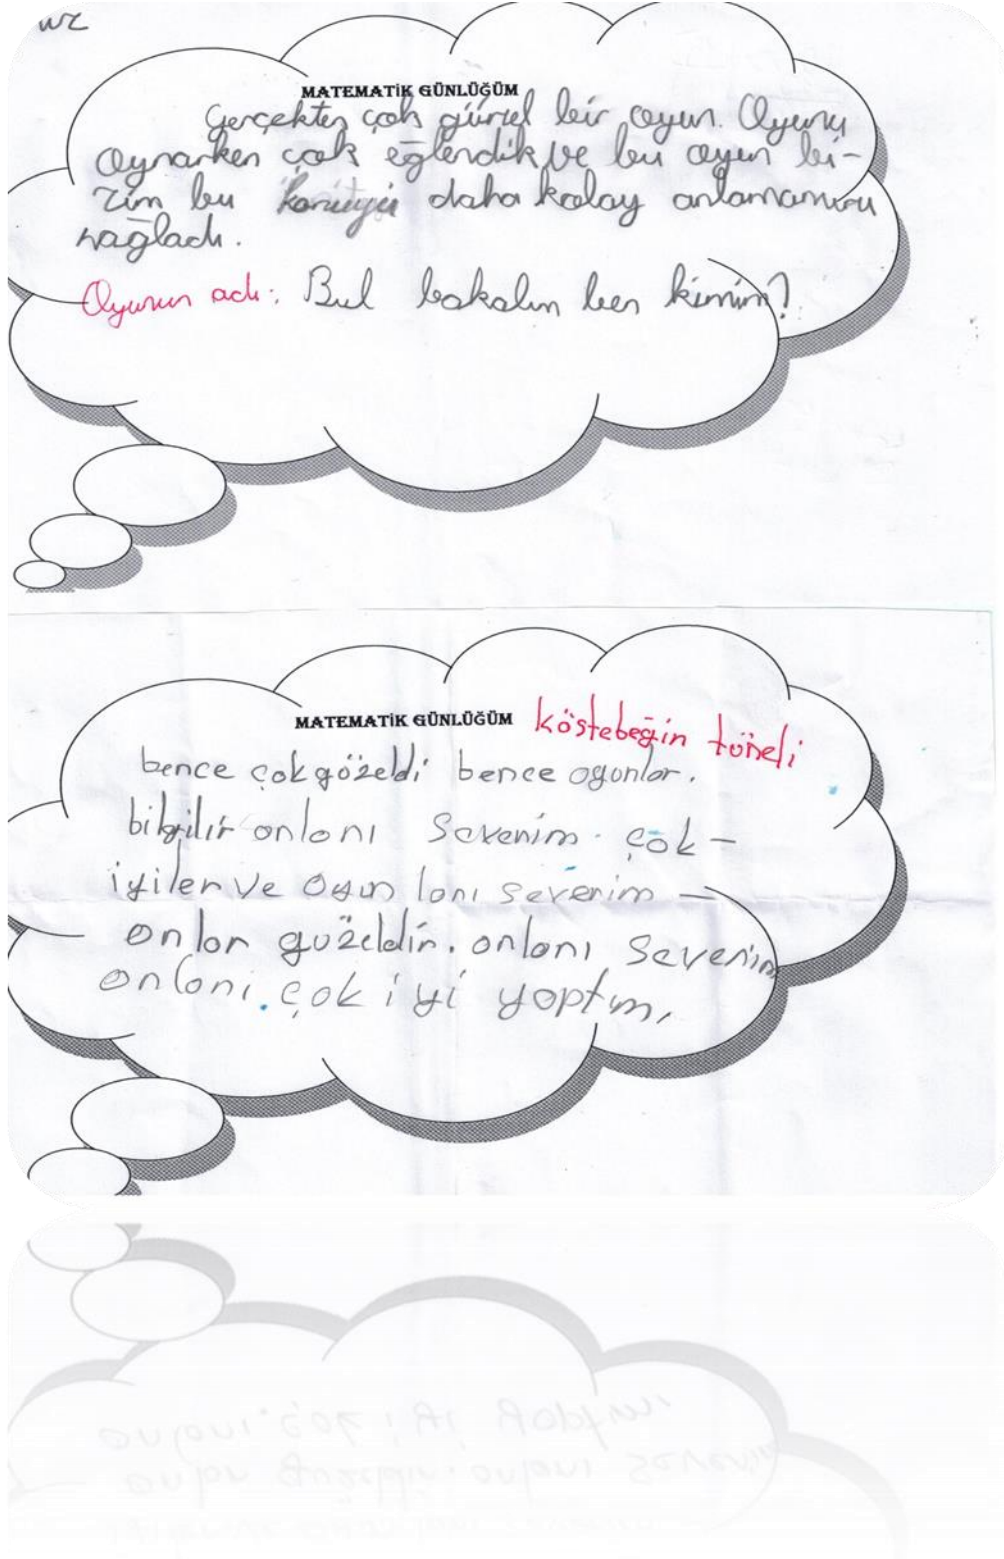 MATEMATİK GÜNLÜĞÜM
Gerçekten çok güzel bir oyun. Oyunu
oynarken çok eğlendik ve bu oyun bi-
zim bu konuyu daha kolay anlamamızı
sağladı.
Oyunun adı: Bul bakalım ben kimim?
MATEMATİK GÜNLÜĞÜM köstebeğin tüneli
bence çok gözeldi bence oyunlar.
onlanı severim. çok-
iyiler ve oyun lanı severim -
onlar güzeldir. onlanı severim
onlanı. çok iyi yaptım,